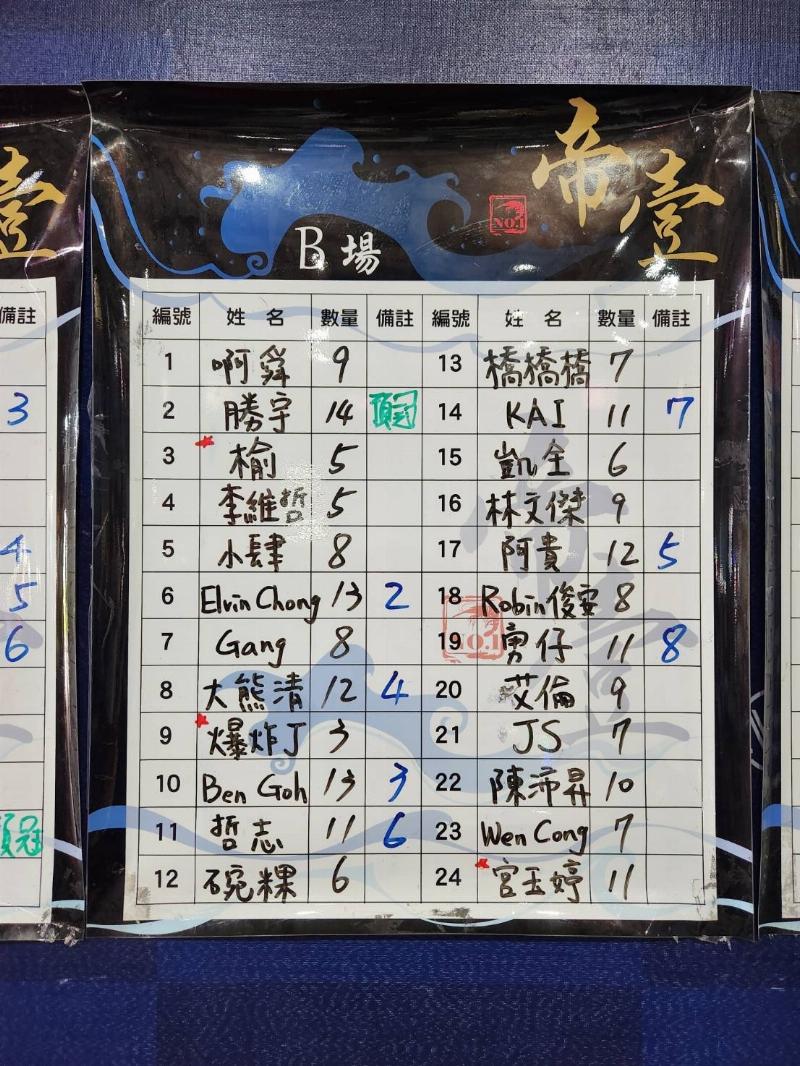 帝壹
NO.1
B場
編號 姓名 數量 備註 編號 姓名 數量 備註
1 啊舜 9 13 橋橋橋 7
2 勝宇 14 頂冠 14 KAI 11 7
3 榆 5 15 凱全 6
4 李維哲 5 16 林文傑 9
5 小肆 8 17 阿貴 12 5
6 Elvin Chong 13 2 18 Robin俊安 8
7 Gang 8 19 勇仔 11 8
8 大熊清 12 4 20 艾倫 9
9 爆炸丁 3 21 JS 7
10 Ben Goh 13 3 22 陳沛昇 10
11 哲志 11 6 23 Wen Cong 7
12 碗粿 6 24 宮玉婷 11
壹
備註
3
4
5
6
頂冠